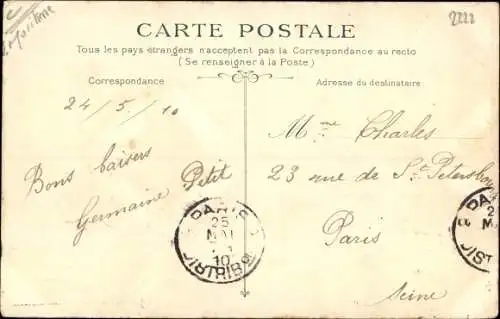 2222
CARTE POSTALE
Tous les pays étrangers n'acceptent pas la Correspondance au recto
(Se renseigner à la Poste)
Correspondance
Adresse du destinataire
24/5/10
Bons baisers
Germaine Petit
Mme Charles
23 rue de St Petersbourg
Paris
Seine
PARIS
25
MAI
10
DISTRIB
PA
2
M
DIST